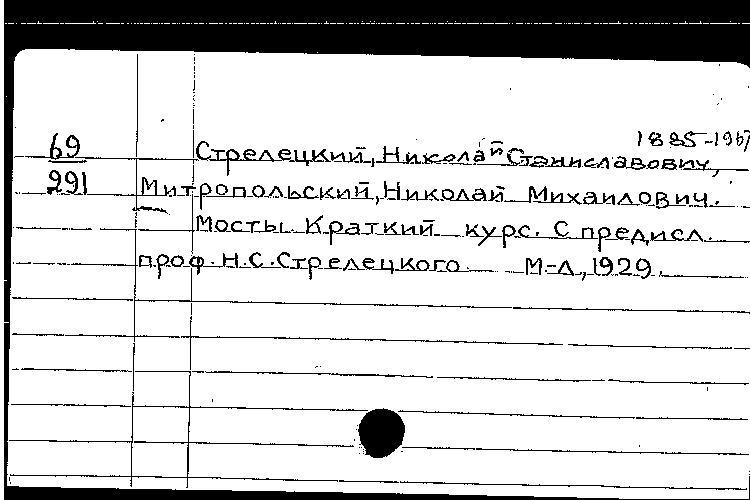 1885-1967
69 Стрелецкий, Николай Станиславович,
291 Митропольский, Николай Михаилович.
Мосты. Краткий курс. С предисл.
проф. Н.С. Стрелецкого. М-Л, 1929.